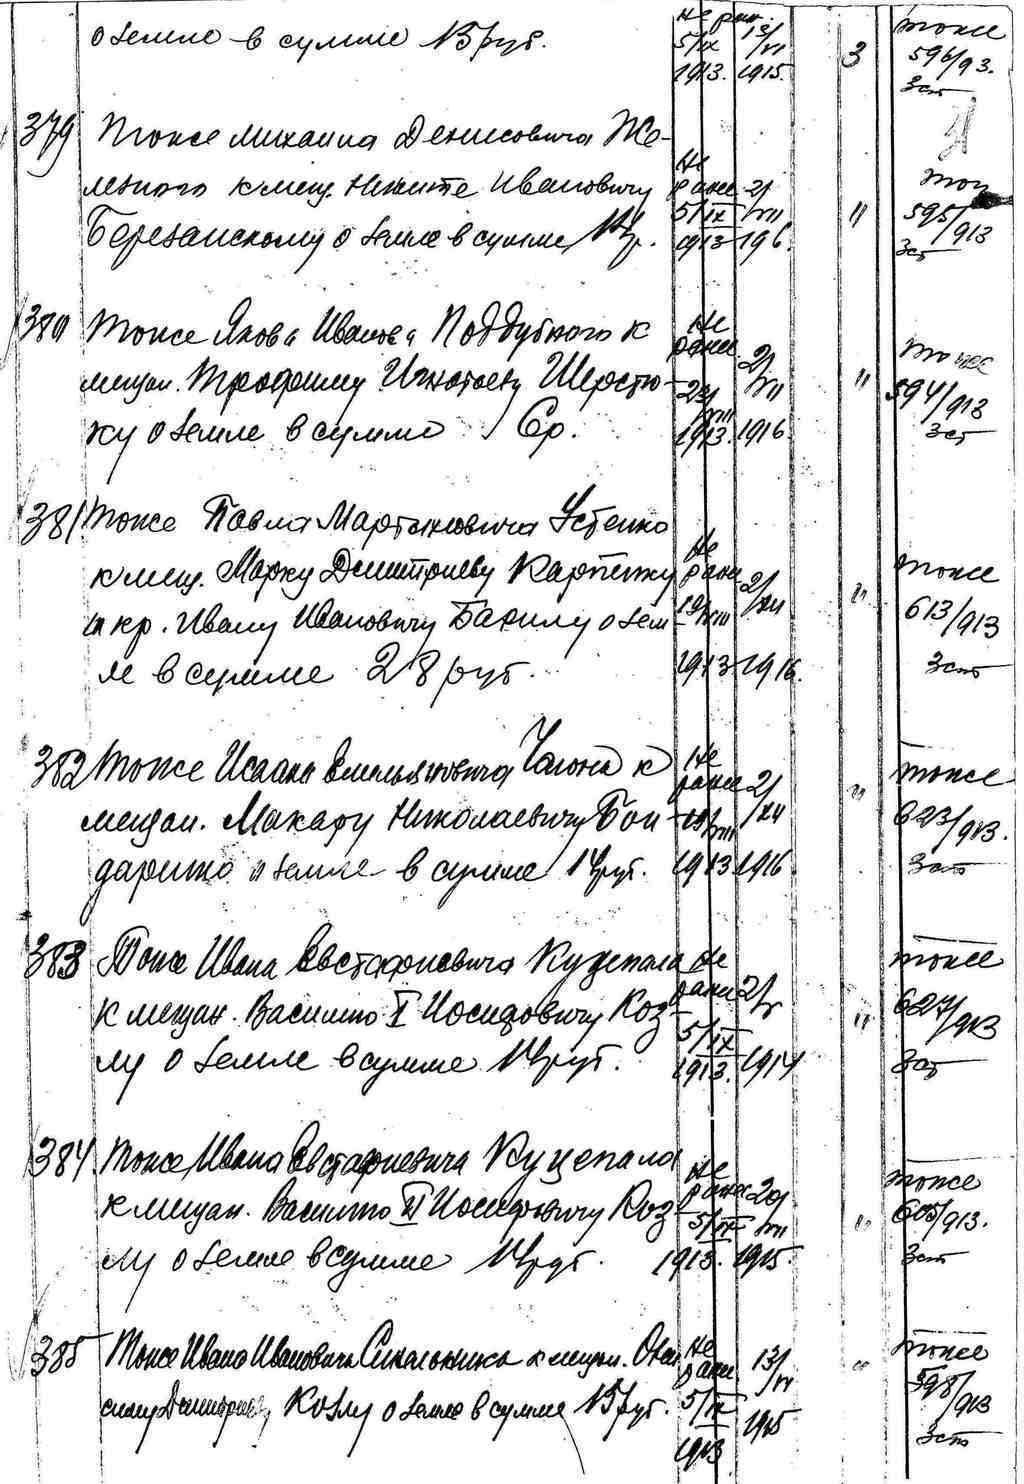 о земле в сумме 15 руб.
не ран.
5/IX 13/VI
1913. 1915.
3
тоже
596/913.
3 ст
379
Тоже Михаила Денисовича Же-
к мещ. Никите Ивановичу
Березанскому о земле в сумме
Не ранее
5/IX
1913
2/VII
1916.
"
595/913
3 ст
380
Тоже Якова Иванова Поддубного к
мещан. Трофиму Игнатьеву Шерстю-
ку о земле в сумме
Не ранее
1913. 1916.
"
тоже
594/913
3 ст
381
Тоже Павла Мартыновича Устенко
к мещ. Марку Дмитриеву Карпенку
и кр. Ивану Ивановичу Бакилу о зем
ле в сумме 28 руб.
Не ране
2/XII
1913. 1916.
"
тоже
613/913
3 ст
382
Тоже Исаака Емельяновича к
мещан. Макару Николаевичу Бон
даренко о земле в сумме 14 руб.
Не ранее
2/XII
1913. 1916
"
тоже
623/913.
3 ст
383
Тоже Ивана Евстафиевича Куцепала
к мещан. Василию I Иосифовичу Коз-
лу о земле в сумме 14 руб.
Не ранее
5/IX
1913. 1914
"
тоже
627/913
3 ст
384
Тоже Ивана Евстафиевича Куцепала
к мещан. Василию II Иосифовичу Коз-
лу о земле в сумме 14 руб.
Не ранее
5/IX
1913. 1915.
"
тоже
605/913.
3 ст
385
Тоже Ивана Ивановича Синельника к мещан. Они
симу Дмитриеву Козлу о земле в сумме 15 руб.
Не ране
5/IX
1913
13/VI
1915
"
тоже
598/913
3 ст